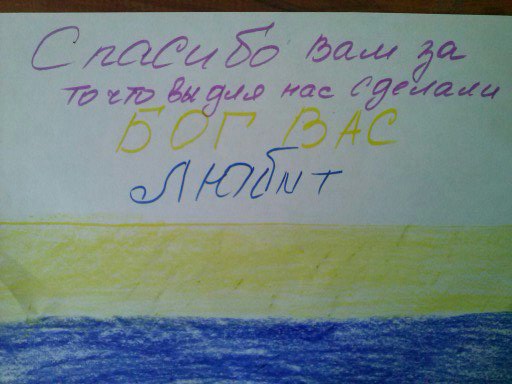 Спасибо вам за
то что вы для нас сделали
БОГ ВАС
ЛЮБИТ